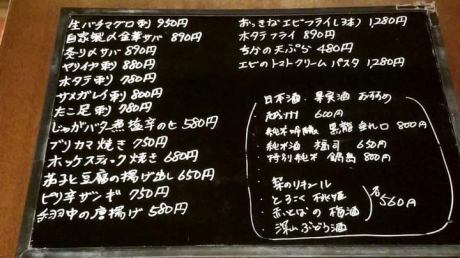 生バチマグロ刺 950円
自家製〆金華サバ 890円
炙り〆サバ 890円
ヤリイカ刺 880円
ホタテ刺 780円
サメガレイ刺 800円
たこ足刺 780円
じゃがバタ煮塩辛のせ 580円
ブリカマ焼き 750円
ホッケスティック焼き 680円
茄子と豆腐の揚げ出し 650円
ピリ辛ザンギ 750円
手羽中の唐揚げ 580円
おっきなエビフライ(3本) 1,280円
ホタテフライ 890円
ちかの天ぷら 480円
エビのトマトクリームパスタ 1,280円
日本酒・果実酒 おすすめ
600円
純米吟醸 黒龍 垂れ口 800円
純米酒 福司 650円
特別純米 鍋島 800円
梨のリキュール
とろこく 桃姫
あいとばの 梅酒
深山ぶどう酒
各560円